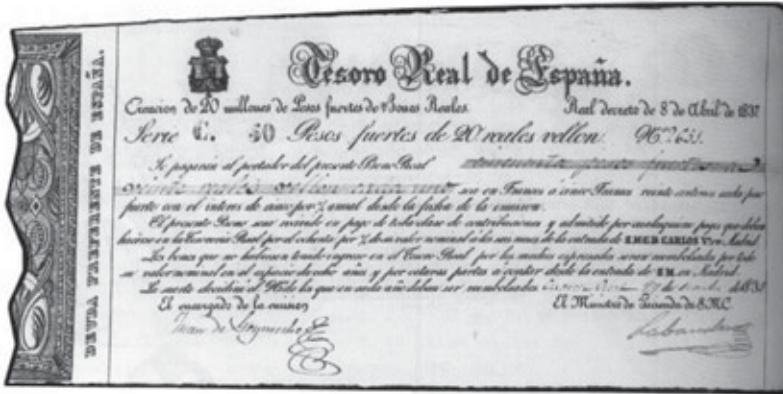 DEUDA PREFERENTE DE ESPAÑA.
Tesoro Real de España.
Creacion de 20 millones de Pesos fuertes de Bonos Reales. Real decreto de 8 de Abril de 1837
Serie C. 50 Pesos fuertes de 20 reales vellon. N.º 651.
Se pagarán al portador del presente Bono Real cincuenta pesos fuertes de
veinte reales vellon cada uno, sea en Francos a cinco Francos veinte centimos cada peso
fuerte con el interes de cinco por % anual desde la fecha de la emision.
El presente Bono será recivido en pago de toda clase de contribuciones y admitido por cualesquiera pagos que deban
hacerse en la Tesoreria Real por el ochenta por % de su valor nominal a los seis meses de la entrada de S.M.E.S.D. CARLOS V. en Madrid
Los bonos que no hubiesen tenido ingreso en el Tesoro Real por los medios espresados seran reembolsados por todo
su valor nominal en el espacio de ocho años y por octavas partes a contar desde la entrada de S.M. en Madrid.
La suerte decidirá el Nº de los que en cada año deban ser reembolsados
El encargado de la emision El Ministro de Hacienda de S.M.C.
Juan de Labandero